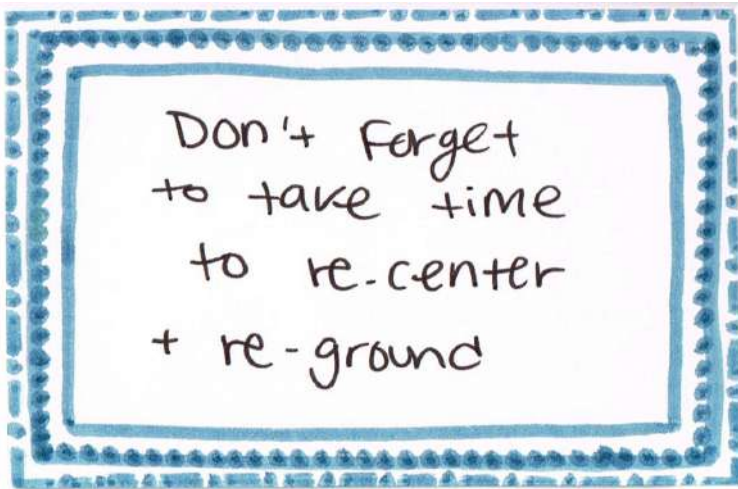 Don't Forget
to take time
to re-center
+ re-ground